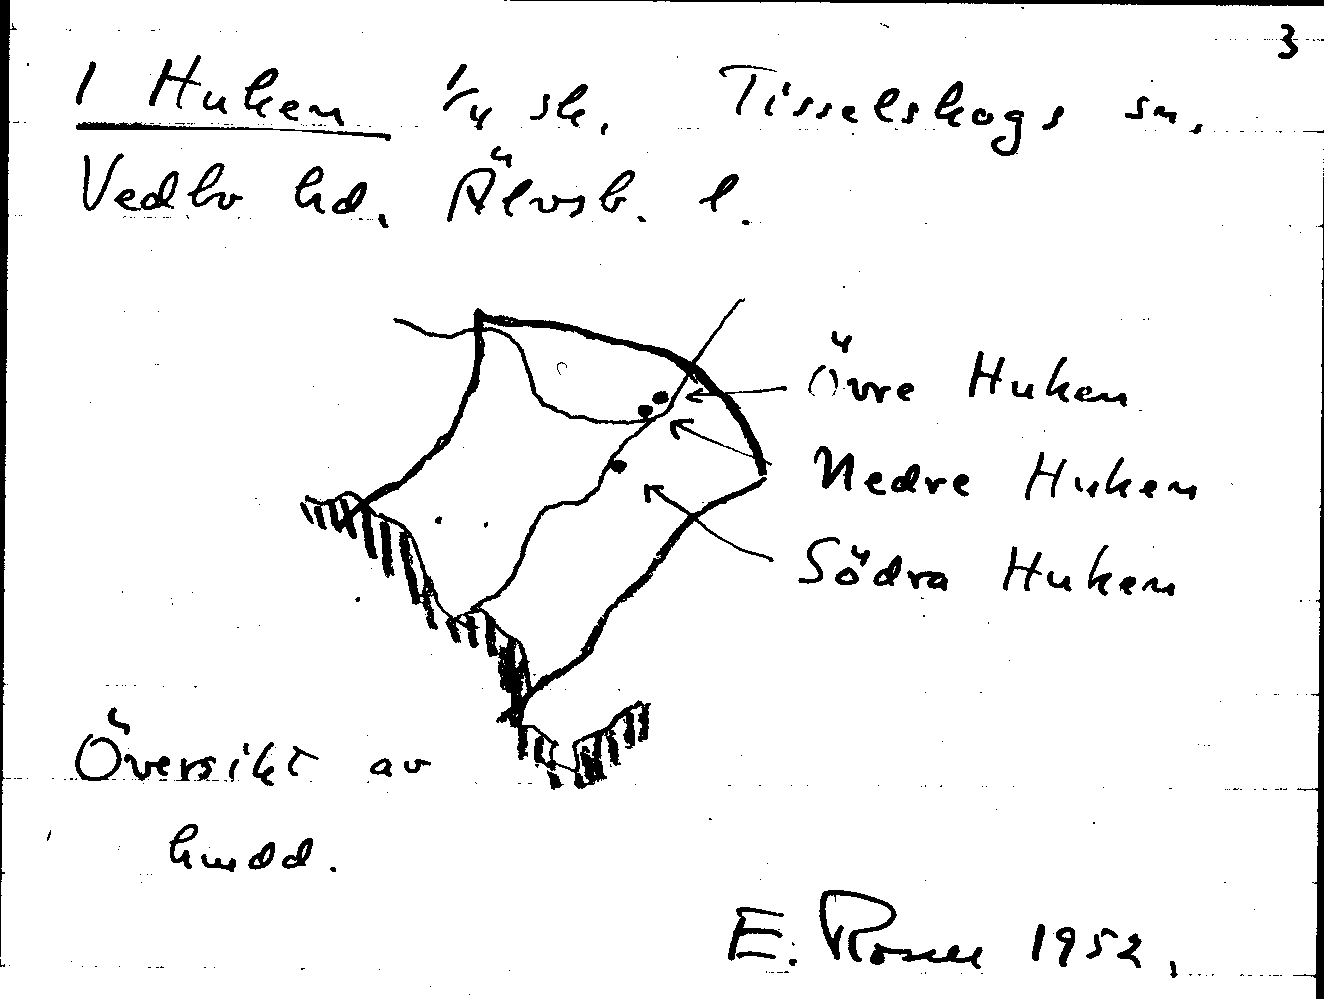 3
1 Huken 1/4 sk. Tisselskogs sn.
Vedbo hd. Älvsb. l.
Övre Huken
Nedre Huken
Södra Huken
Översikt av
hmdd.
E. Rosell 1952.